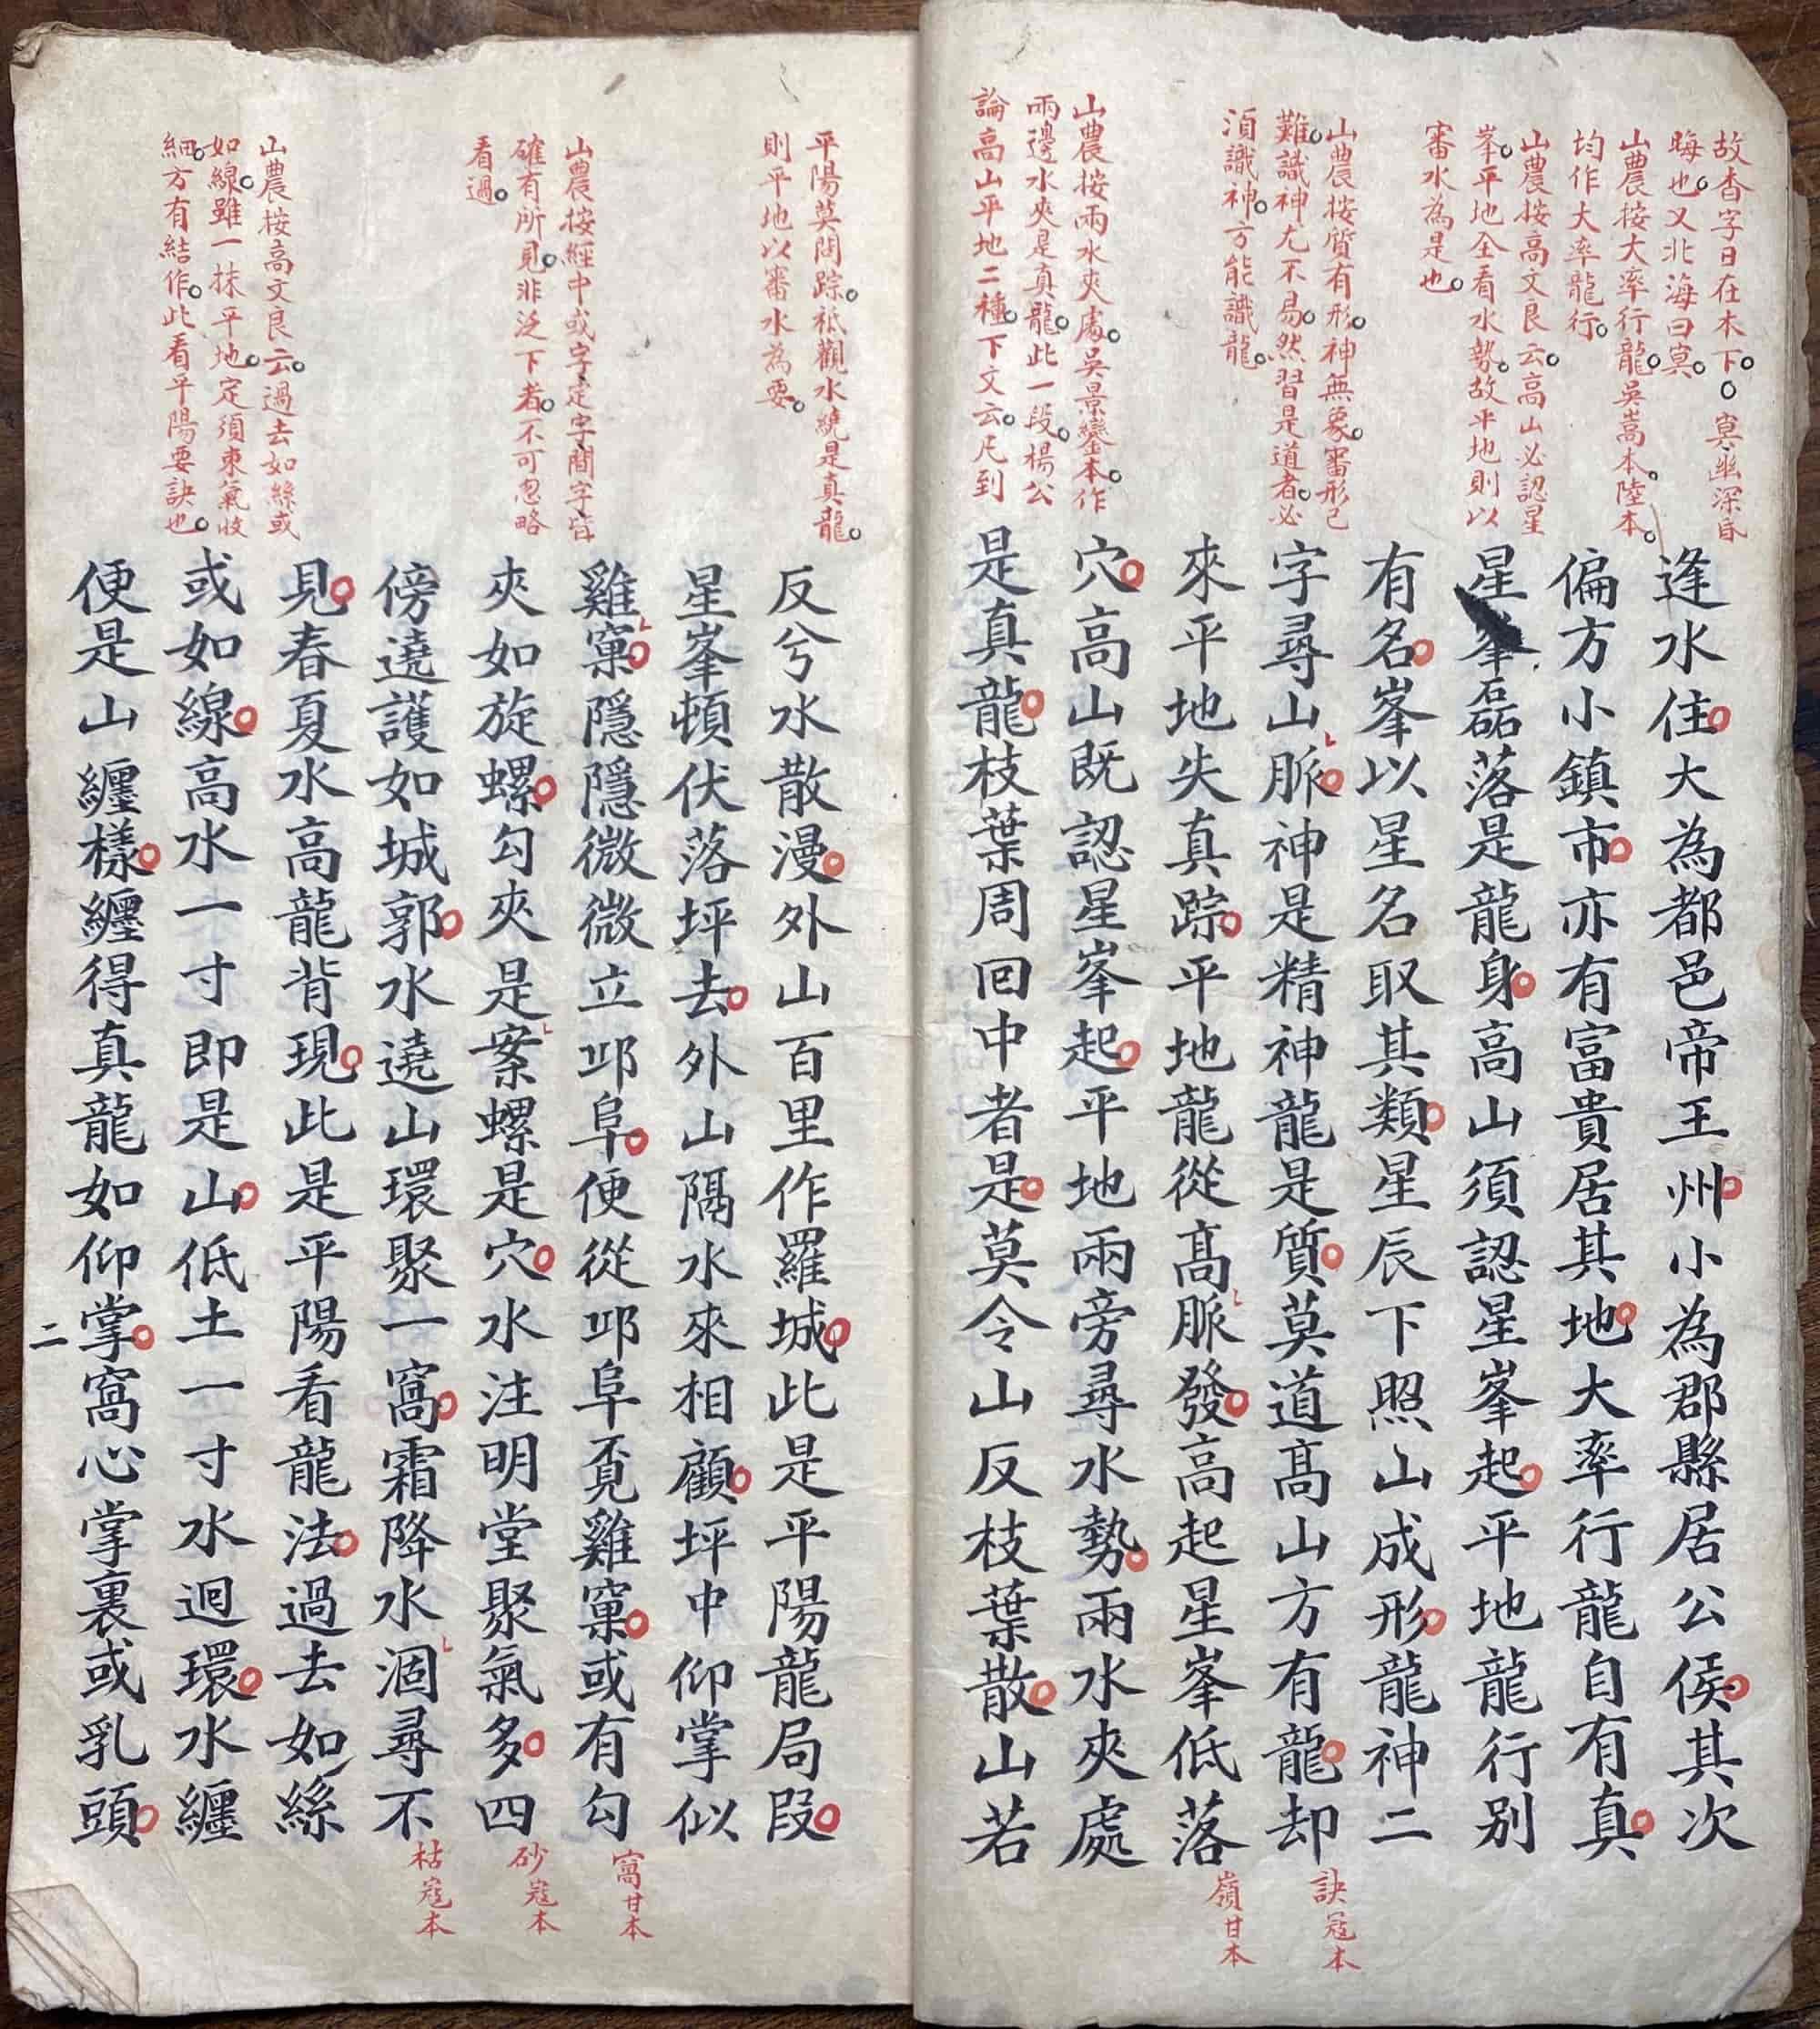 故杳字日在木下。冥幽深昏
晦也。又北海曰冥。
山農按大率行龍。吳嵩本。陸本。
均作大率龍行。
山農按高文良云。高山必認星
峯。平地全看水勢。故平地則以
審水為是也。
山農按質有形。神無象。審形已
難。識神尤不易。然習是道者。必
須識神。方能識龍。
山農按兩水夾處。吳景鸞本。作
兩邊水夾是真龍。此一段。楊公
論高山平地二種。下文云。凡到
逢水住大為都邑帝王州小為郡縣居公侯其次
偏方小鎮市亦有富貴居其地大率行龍自有真
星峯磊落是龍身高山須認星峯起平地龍行別
有名峯以星名取其類星辰下照山成形龍神二
字尋山脈神是精神龍是質莫道高山方有龍却
來平地失真踪平地龍從高脈發高起星峯低落
穴高山既認星峯起平地兩旁尋水勢兩水夾處
是真龍枝葉周回中者是莫令山反枝葉散山若
訣寇本
嶺甘本
平陽莫問踪。祗觀水繞是真龍。
則平地以審水為要。
山農按經中或字定字間字皆
確有所見。非泛下者。不可忽略
看過。
山農按高文良云。過去如絲或
如線。雖一抹平地。定須束氣收
細。方有結作。此看平陽要訣也。
反兮水散漫外山百里作羅城此是平陽龍局段
星峯頓伏落坪去外山隅水來相顧坪中仰掌似
雞窠隱隱微微立邱阜便從邱阜覓雞窠或有勾
夾如旋螺勾夾是案螺是穴水注明堂聚氣多四
傍遶護如城郭水遶山環聚一窩霜降水涸尋不
見春夏水高龍背現此是平陽看龍法過去如絲
或如線高水一寸即是山低土一寸水迴環水纏
便是山纏樣纏得真龍如仰掌窩心掌裏或乳頭
窩甘本
砂寇本
枯寇本
二